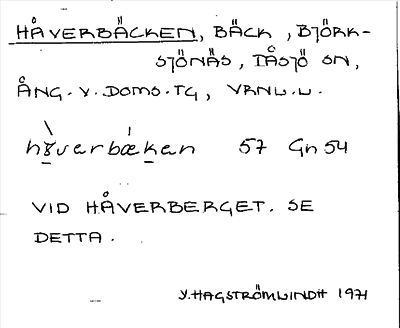 HÅVERBÄCKEN, BÄCK, BJÖRK-
SJÖNÄS, TÅSJÖ SN,
ÅNG. V. DOMS. TG, VRNL.L.
hɣverbæken 57 Gn 54
VID HÅVERBERGET. SE
DETTA.
Y. HAGSTRÖMLINDH 1971